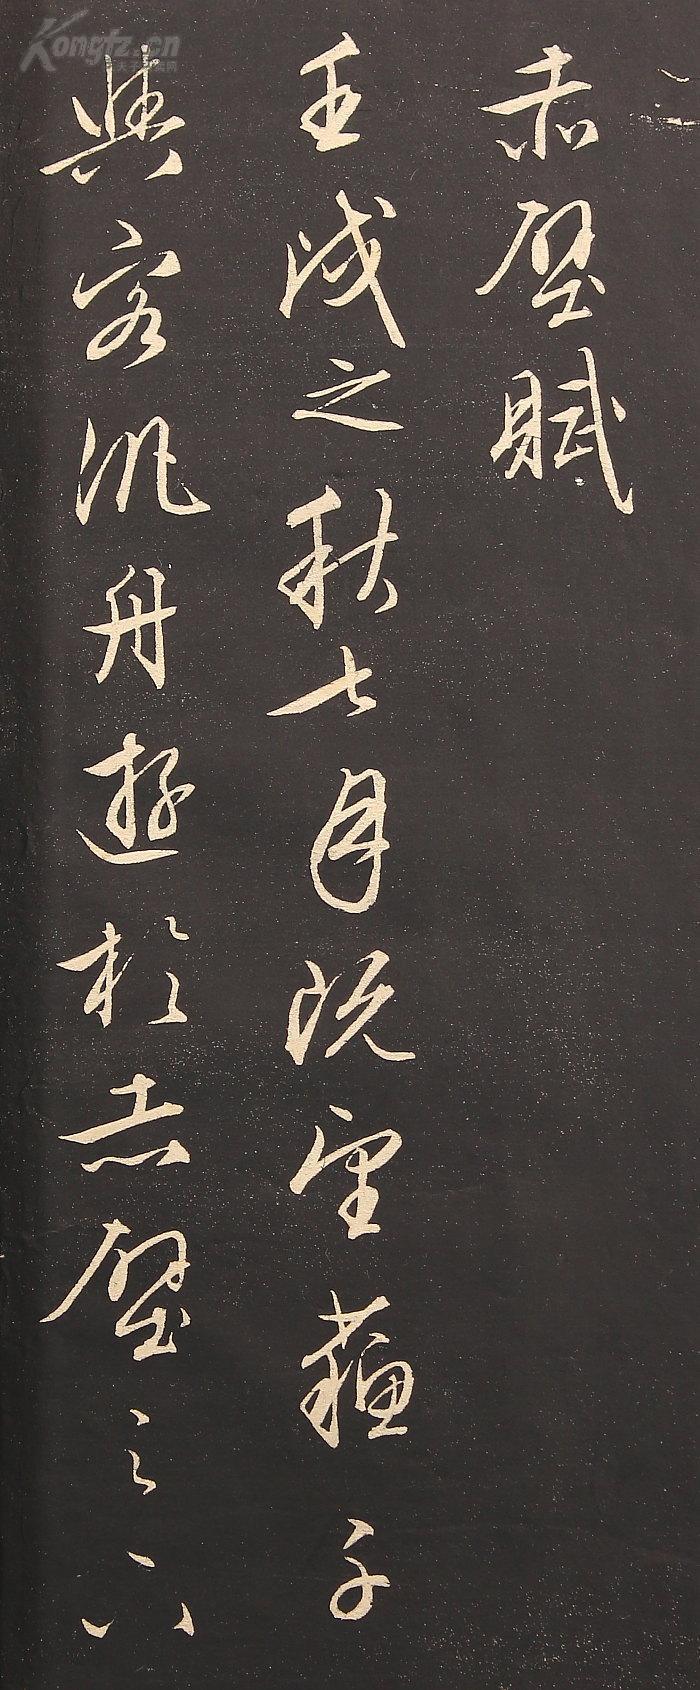 赤壁賦
壬戌之秋七月既望蘇子
與客汎舟遊於赤壁之下
Kongfz.cn